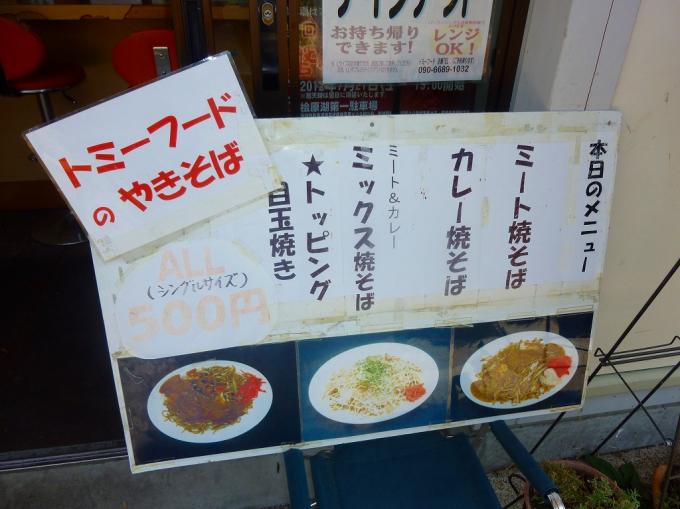 テイクアウト
お持ち帰り
できます!
レンジ
OK!
090-6689-1032
桧原湖第一駐車場
トミーフード
の やきそば
本日のメニュー
ミート焼そば
カレー焼そば
ミート&カレー
ミックス焼そば
★トッピング
目玉焼き
ALL
(シングルサイズ)
500円